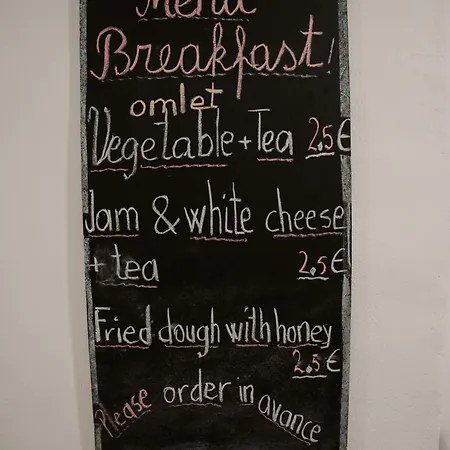 Menu
Breakfast!
omlet
Vegetable + Tea 2.5€
Jam & white cheese
+ tea 2.5€
Fried dough with honey
2.5€
Please order in avance